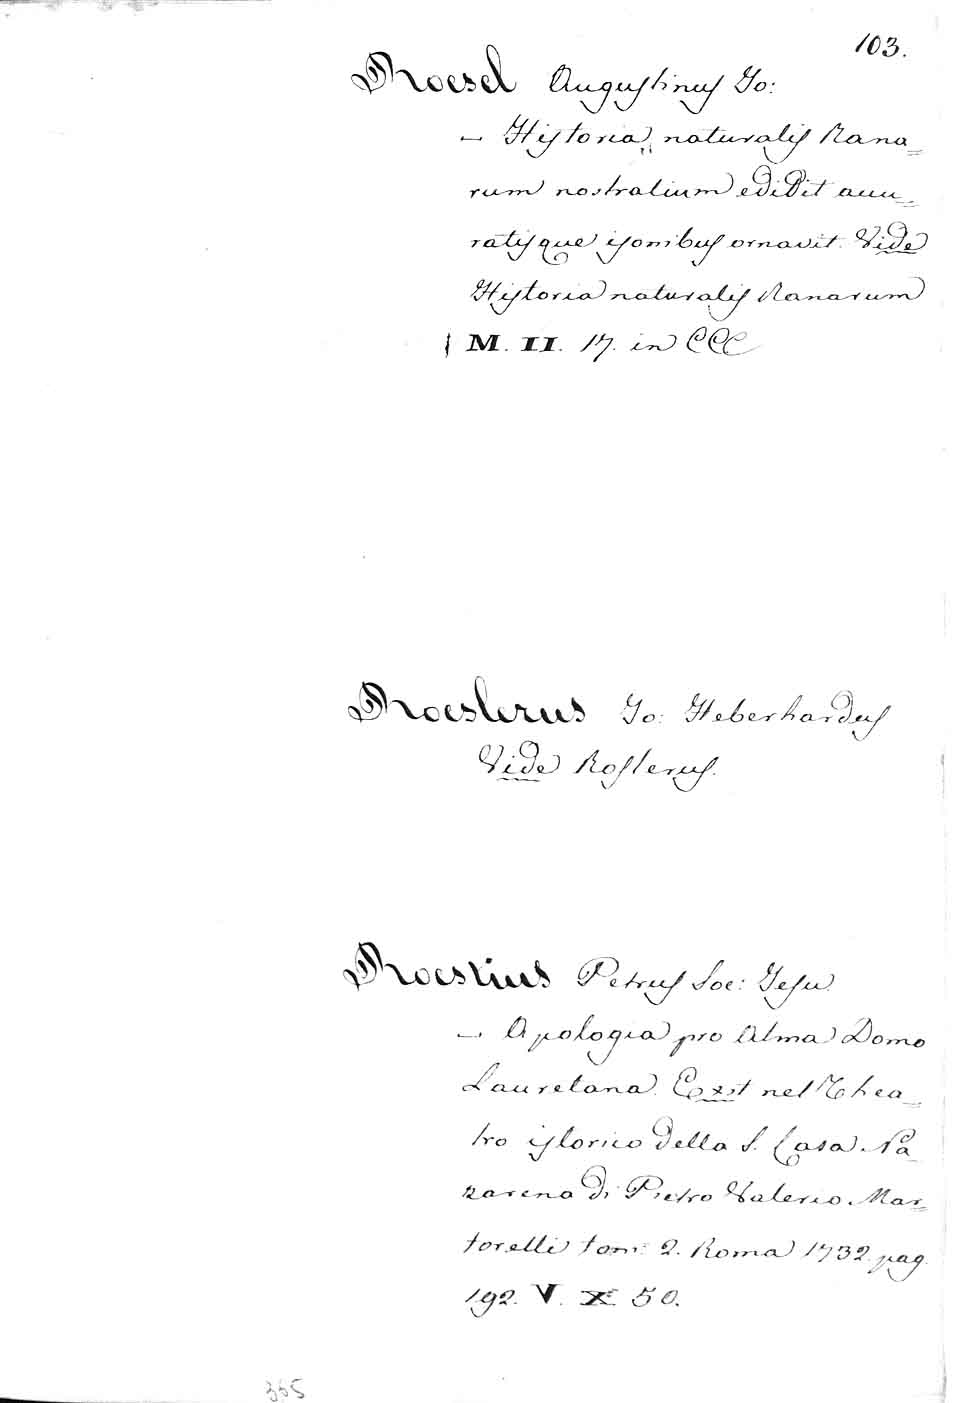 103.
Roesel Augustinus Jo:
— Historia naturalis Rana=
rum nostratium edidit accu=
ratisque iconibus ornavit. Vide
Historia naturalis Ranarum
M. II. 17. in CCC
Roeslerus Jo: Heberhardus
Vide Roslerus.
Roestius Petrus Soc: Jesu.
— Apologia pro Alma Domo
Lauretana. Exst nel Thea=
tro istorico della S. Casa Na=
zarena di Pietro Valerio Mar=
torelli tom: 2. Roma 1732. pag.
192. V. X. 50.